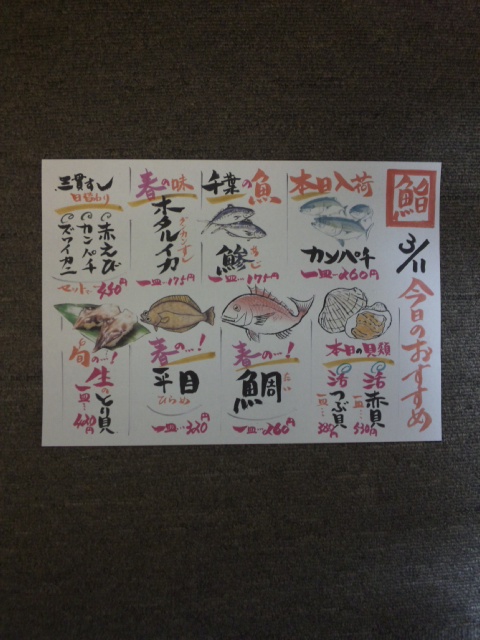 鮨
3/11
今日のおすすめ
本日入荷
カンパチ
一皿…260円
千葉の魚
鯵
あじ
一皿…175円
春の味
ホタルイカ
一皿…175円
三貫すし
日替わり
赤えび
カンパチ
ズワイガニ
セット…550円
本日の貝類
活赤貝
一皿…
530円
活つぶ貝
一皿…
330円
春の…!
鯛
たい
一皿…260円
春の…!
平目
ひらめ
一皿…330円
旬の…!
生とり貝
一皿…
430円